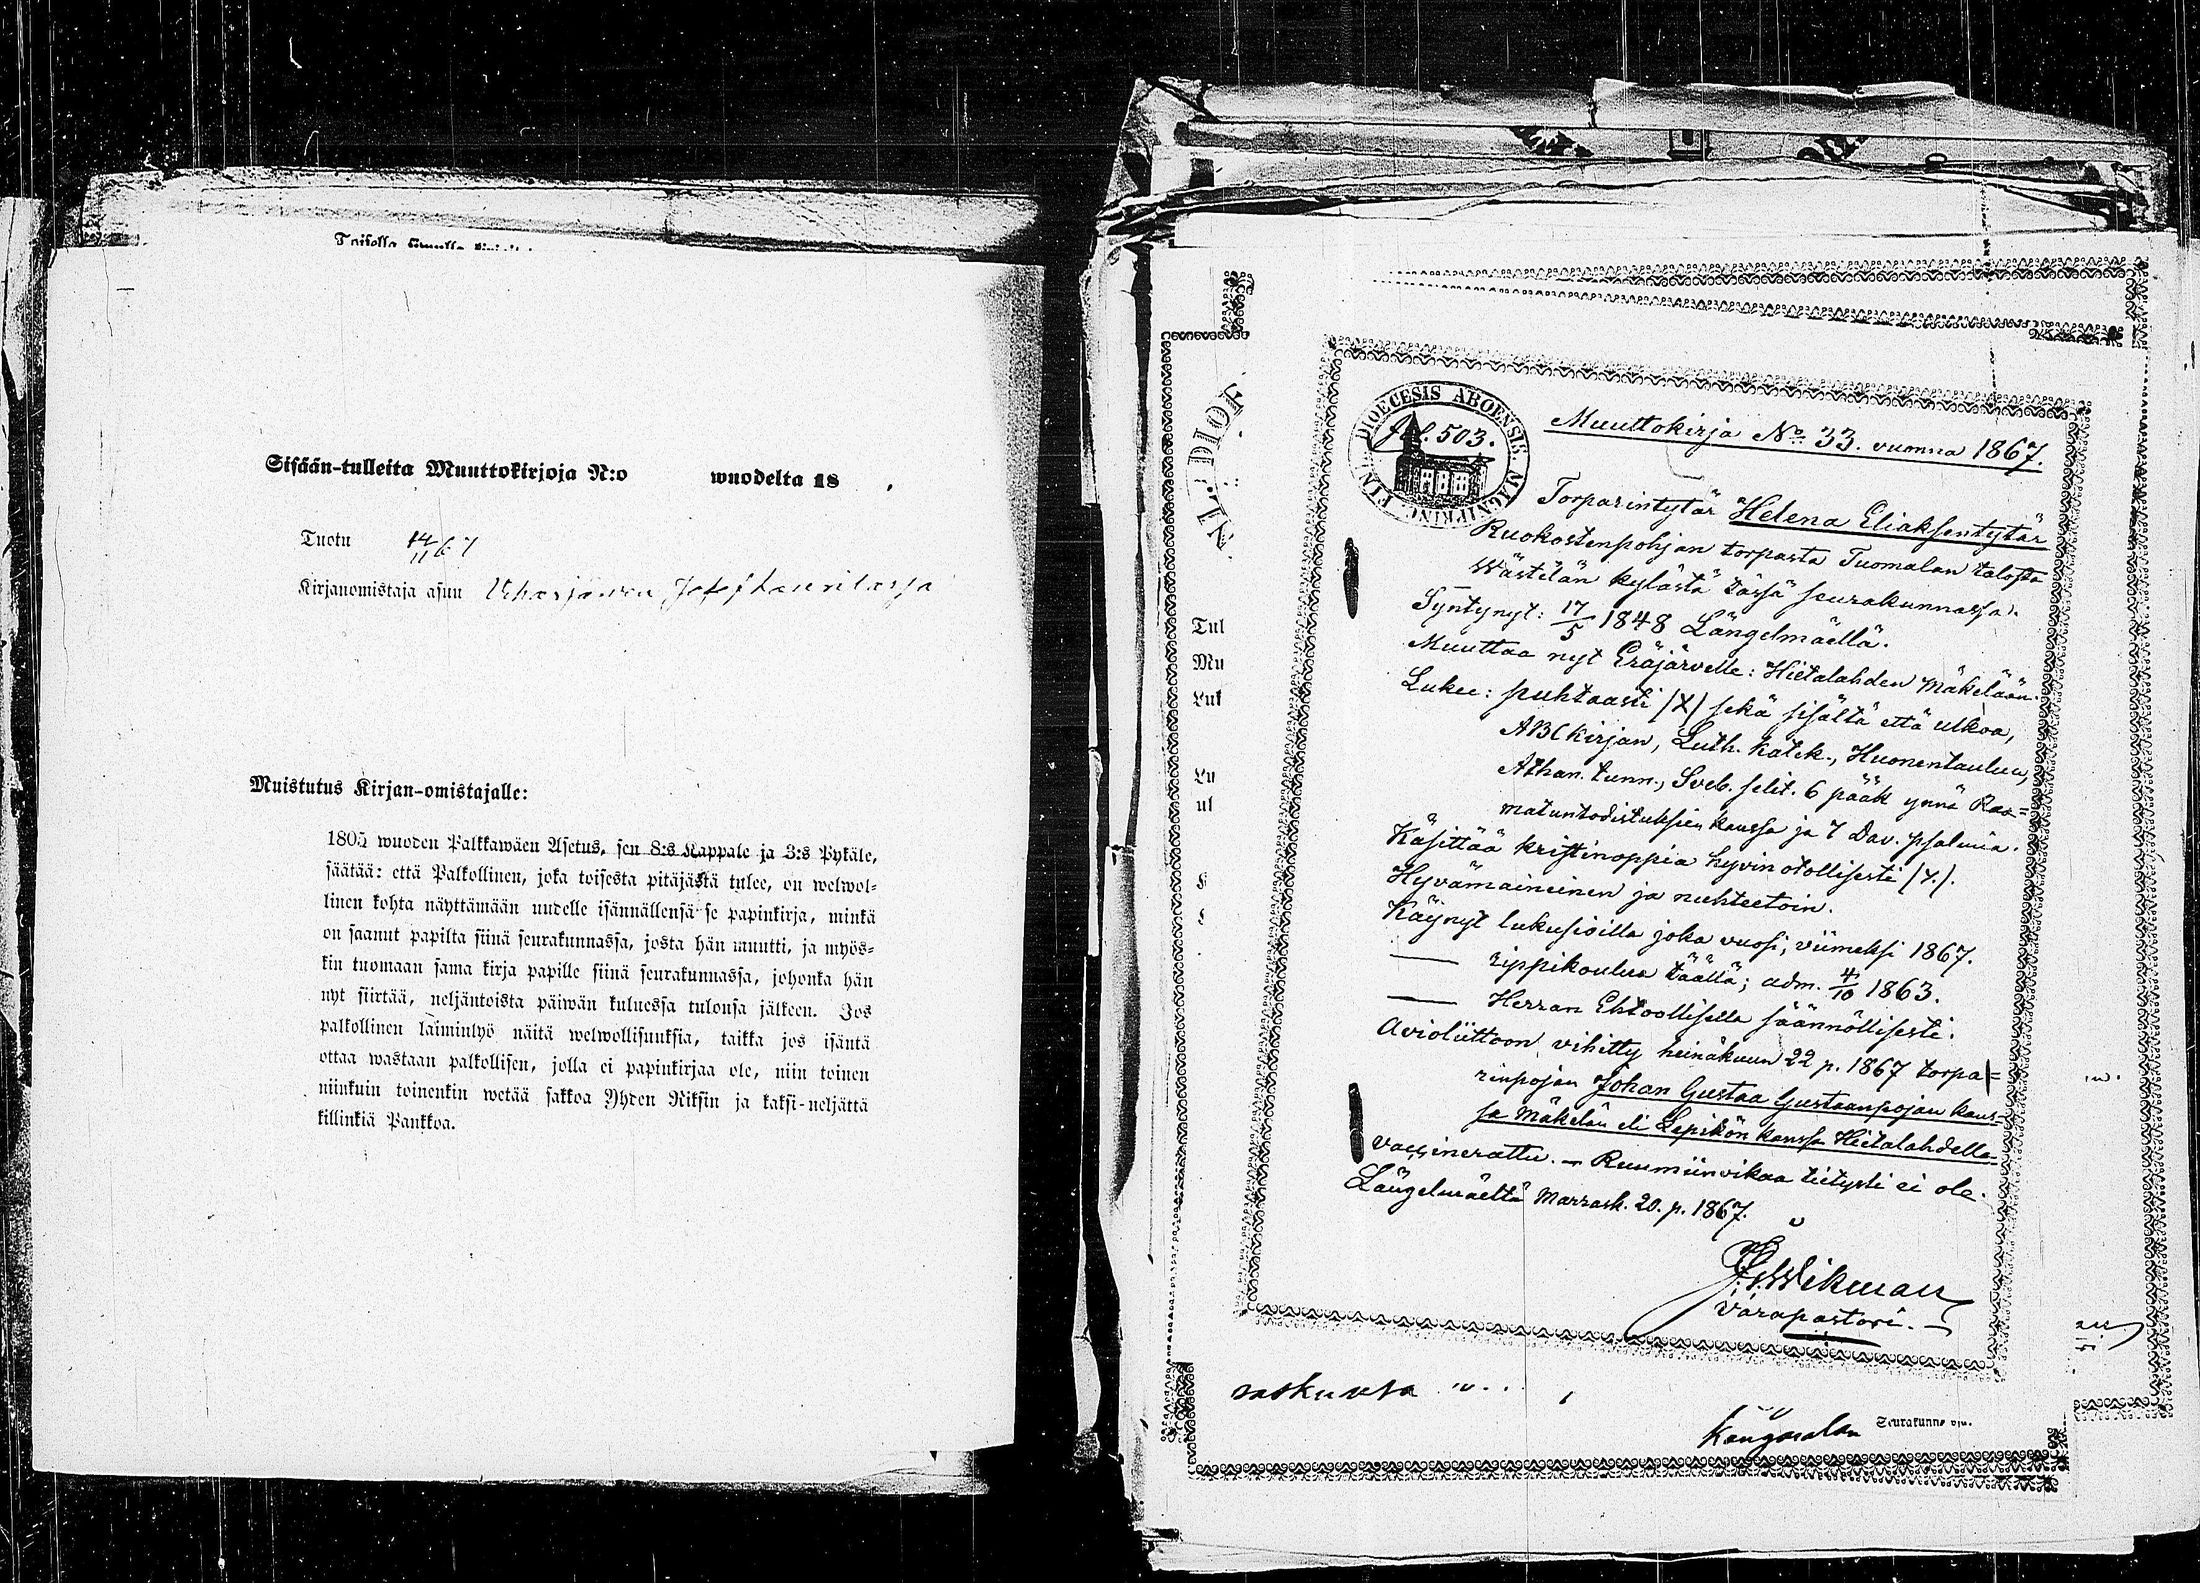 Sisään-tulleita Muuttokirjoja N:o wuodelta 18 .
Tuotu 14/11 67
Kirjanomistaja asuu
Muistutus Kirjan-omistajalle:
1805 wuoden Palkkawäen Asetus, sen 8:s Kappale ja 3:s Pykäle,
säätää: että Palkollinen, joka toisesta pitäjästä tulee, on welwol-
linen kohta näyttämään uudelle isännällensä se papinkirja, minkä
on saanut papilta siinä seurakunnassa, josta hän muutti, ja myös-
kin tuomaan sama kirja papille siinä seurakunnassa, johonka hän
nyt siirtää, neljäntoista päiwän kuluessa tulonsa jälkeen. Jos
palkollinen laiminlyö näitä welwollisuuksia, taikka jos isäntä
ottaa wastaan palkollisen, jolla ei papinkirjaa ole, niin toinen
niinkuin toinenkin wetää sakkoa Yhden Riksin ja kaksi-neljättä
killinkiä Pankkoa.
DIOE
Tul
Mu
Luk
Lu
ul
FIN. DIOECESIS ABOENSIS MAGNIPRINC.
503.
Muuttokirja No 33. vuonna 1867.
Torparintytär Helena Eliaksentytär
Ruokostenpohjan torpasta Tuomalan talosta
Wästilän kylästä tässä seurakunnassa.
Syntynyt: 17/5 1848 Längelmäellä.
Muuttaa nyt Eräjärvelle: Hietalahden Mäkelään.
Lukee: puhtaasti (X) sekä sisältä että ulkoa,
ABCkirjan, Luth. katek., Huonentaulua,
Athan. tunn., Sveb. selit. 6 pääk ynnä Raa=
matuntodistuksien kanssa ja 7 Dav. psalmia.
Käsittää kristinoppia hyvin otollisesti (x).
Hyvämaineinen ja nuhteetoin.
Käynyt lukusioilla joka vuosi, viimeksi 1867.
— rippikoulua täällä; adm. 4/10 1863.
— Herran Ehtoollisella säännöllisesti.
Avioliittoon vihitty heinäkuun 22 p. 1867 torpa=
rinpojan Johan Gustaa Gustaanpojan kans-
sa Mäkelän eli Lepikön kanssa Hietalahdella
vaccinerattu. — Ruumiinvikaa tietysti ei ole.
Längelmäeltä Marrask. 20. p. 1867.
Wikman
Varapastori.
Seurakunna
Kangasalan